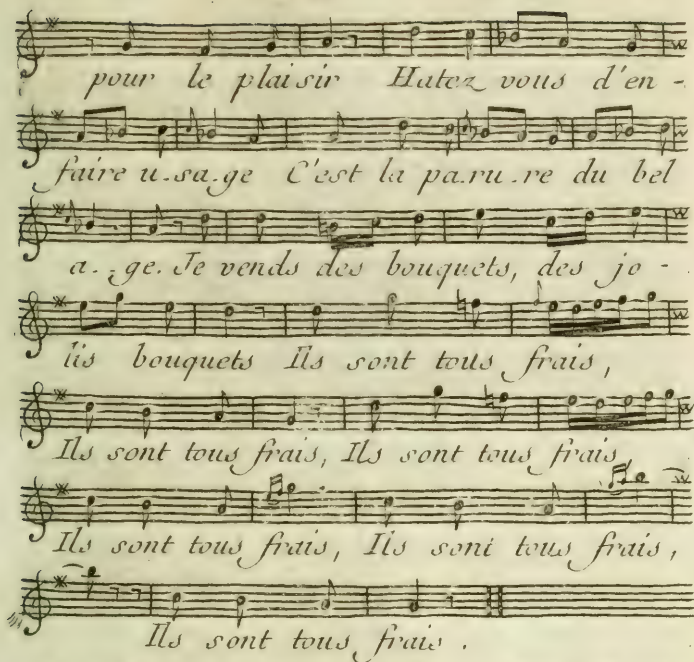 pour le plaisir Hatez vous d'en-
faire u.sa.ge C'est la pa.ru.re du bel
a.-ge. Je vends des bouquets, des jo-
lis bouquets Ils sont tous frais,
Ils sont tous frais, Ils sont tous frais,
Ils sont tous frais, Ils sont tous frais,
Ils sont tous frais.